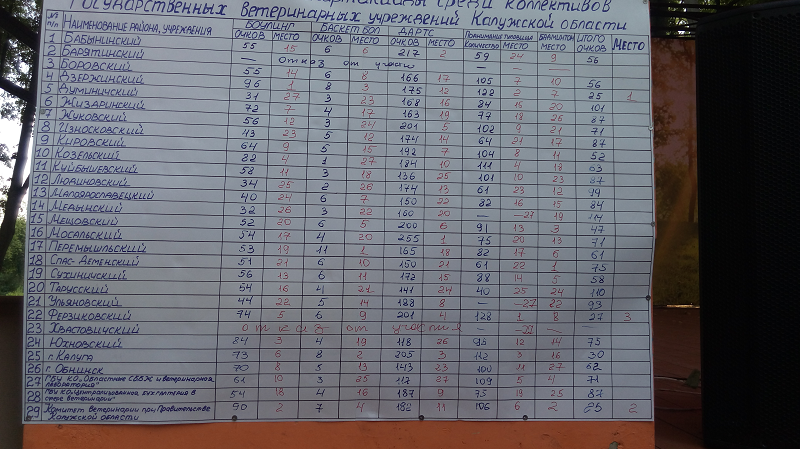 Государственных ветеринарных учреждений Калужской области
№ п/п Наименование района, учреждения Боулинг Баскетбол Дартс Бадминтон Итого очков Место
очков место очков место очков место количество место место
1 Бабынинский 55 15 6 6 217 2 59 24 9 56
2 Барятинский — отказ от участия
3 Боровский
4 Дзержинский 55 14 6 8 166 17 105 7 10 56
5 Думиничский 96 1 8 3 175 12 122 2 7 25 1
6 Жиздринский 31 27 3 23 168 16 84 15 20 101
7 Жуковский 72 7 4 17 163 19 77 18 26 87
8 Износковский 56 12 3 24 201 5 102 9 21 71
9 Кировский 43 23 5 12 174 14 64 21 17 87
10 Козельский 64 9 5 15 192 7 104 8 11 52
11 Куйбышевский 82 4 1 27 184 10 111 4 18 63
12 Людиновский 58 11 3 18 136 25 101 10 23 87
13 Малоярославецкий 34 25 2 26 174 13 61 23 12
14 Медынский 40 24 6 7 150 22 82 16 15 84
15 Мещовский 32 26 3 22 160 20 — 27 19
16 Мосальский 52 20 6 5 200 6 91 13 3 47
17 Перемышльский 54 17 4 20 255 1 75 20 13 71
18 Спас-Деменский 53 19 11 1 165 18 82 17 6 61
19 Сухиничский 51 21 6 10 150 21 61 22 1 75
20 Тарусский 56 13 6 11 172 15 88 14 5 58
21 Ульяновский 54 16 4 21 141 24 40 25 24 110
22 Ферзиковский 44 22 5 14 188 8 — 27 22 93
23 Хвастовичский 74 5 6 9 201 4 128 1 8 27 3
24 Юхновский отказ от участия
25 г. Калуга 84 3 4 19 118 26 12 14 75
26 г. Обнинск 73 6 8 2 205 3 112 3 16 30
27 ГБУ КО "Областные СББЖ и ветеринарная лаборатория" 70 8 5 13 143 23 100 11 27 62
61 10 3 25 117 27 109 5 4 71
28 ГБУ КО Централизованная бухгалтерия в сфере ветеринарии" 54 18 4 16 187 9 75 19 25 87
29 Комитет ветеринарии при Правительстве Калужской области 90 2 7 4 182 11 106 6 2 25 2